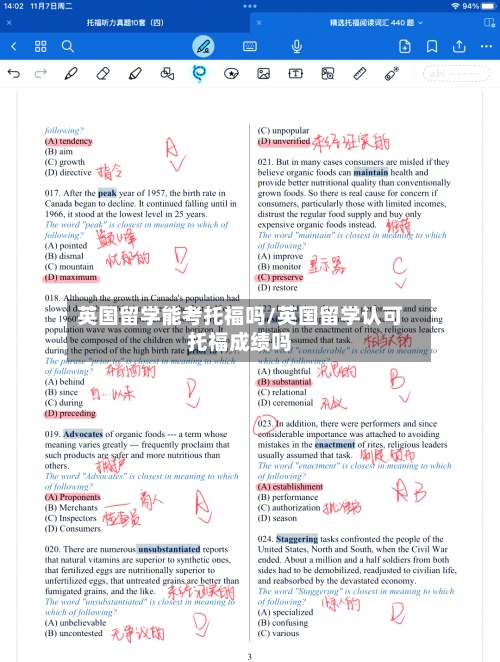 14:02 11月7日周二
94%
托福听力真题10套（四）
精选托福阅读词汇 440 题
abc
following?
(A) tendency
(B) aim
(C) growth
(D) directive 指令
A
017. After the peak year of 1957, the birth rate in
Canada began to decline. It continued falling until in
1966, it stood at the lowest level in 25 years.
The word "peak" is closest in meaning to which of
following?
(A) pointed
(B) dismal
(C) mountain
(D) maximum
D
018. Although the growth in Canada's population had
slowed
the 1960
population wave was coming over the horizon. It
would be composed of the children who
during the period of the high birth rate prior to
The phrase "prior to" is closest in meaning to which
of following?
(A) behind
(B) since 自…以来
(C) during
(D) preceding
D
019. Advocates of organic foods --- a term whose
meaning varies greatly --- frequently proclaim that
such products are safer and more nutritious than
others. 拥护
The word "Advocates" is closest in meaning to which
of following?
(A) Proponents
(B) Merchants 商人
(C) Inspectors 检查员
(D) Consumers
A
020. There are numerous unsubstantiated reports
that natural vitamins are superior to synthetic ones,
that fertilized eggs are nutritionally superior to
unfertilized eggs, that untreated grains are better than
fumigated grains, and the like. 未经证实的
The word "unsubstantiated" is closest in meaning to
which of following?
(A) unbelievable
(B) uncontested 无争议的
D
(C) unpopular
(D) unverified 未经证实的
021. But in many cases consumers are misled if they
believe organic foods can maintain health and
provide better nutritional quality than conventionally
grown foods. So there is real cause for concern if
consumers, particularly those with limited incomes,
distrust the regular food supply and buy only
expensive organic foods instead. 维持
The word "maintain" is closest in meaning to which
of following?
(A) improve
(B) monitor 显示器
(C) preserve
(D) restore
C
and since
mistakes in the enactment of rites, religious leaders
assumed that task.
considerable" is closest in meaning to which
(A) thoughtful 沉思的
(B) substantial
(C) relational
(D) ceremonial 礼仪
B
023. In addition, there were performers and since
considerable importance was attached to avoiding
mistakes in the enactment of rites, religious leaders
usually assumed that task. 制定 颁布
The word "enactment" is closest in meaning to which
of following?
(A) establishment
(B) performance
(C) authorization 批准
(D) season
A B
024. Staggering tasks confronted the people of the
United States, North and South, when the Civil War
ended. About a million and a half soldiers from both
sides had to be demobilized, readjusted to civilian life,
and reabsorbed by the devastated economy.
The word "Staggering" is closest in meaning to which
of following? 惊人的
(A) specialized
(B) confusing
(C) various
D
英国留学能考托福吗/英国留学认可
托福成绩吗
3